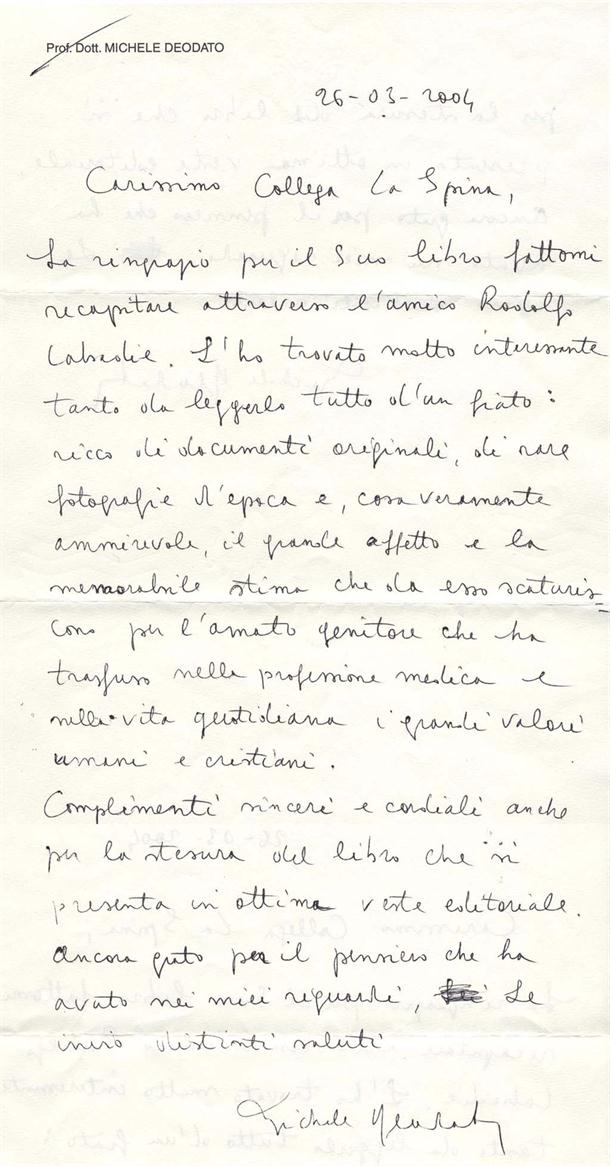 Prof. Dott. MICHELE DEODATO
26-03-2004
Carissimo Collega La Spina,
La ringrazio per il Suo libro fattomi
recapitare attraverso l'amico Rodolfo
Labadie. L'ho trovato molto interessante
tanto da leggerlo tutto d'un fiato:
ricco di documenti originali, di rare
fotografie d'epoca e, cosa veramente
ammirevole, il grande affetto e la
memorabile stima che da esso scaturis=
cono per l'amato genitore che ha
trasfuso nella professione medica e
nella vita quotidiana i grandi valori
umani e cristiani.
Complimenti sinceri e cordiali anche
per la stesura del libro che si
presenta in ottima veste editoriale.
Ancora grato per il pensiero che ha
avuto nei miei riguardi, Le
invio distinti saluti
Michele Deodato